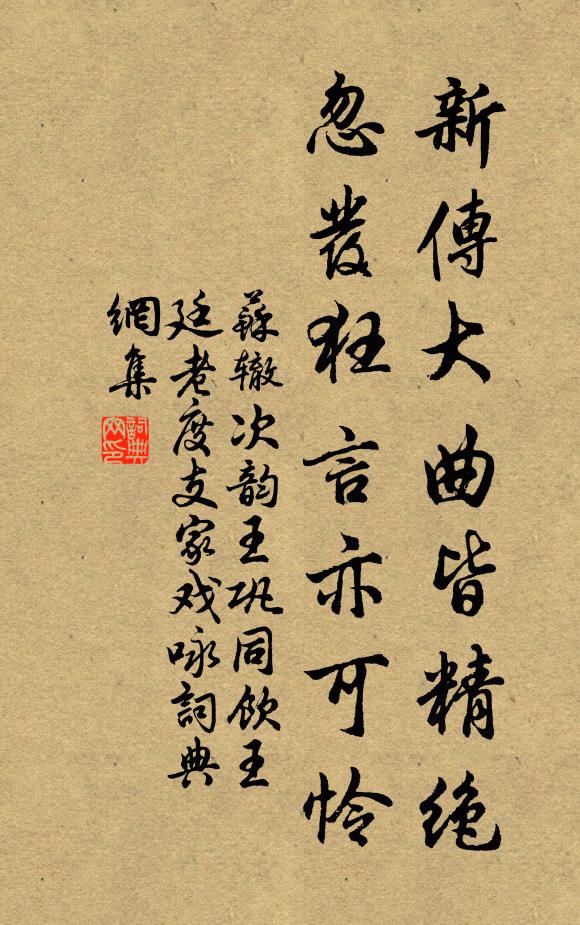 新傳大曲皆精絶
忽發狂言亦可怜
蘇辙次韵王巩同飲王
廷老度支家戏咏詞典
網集
詞典
网印